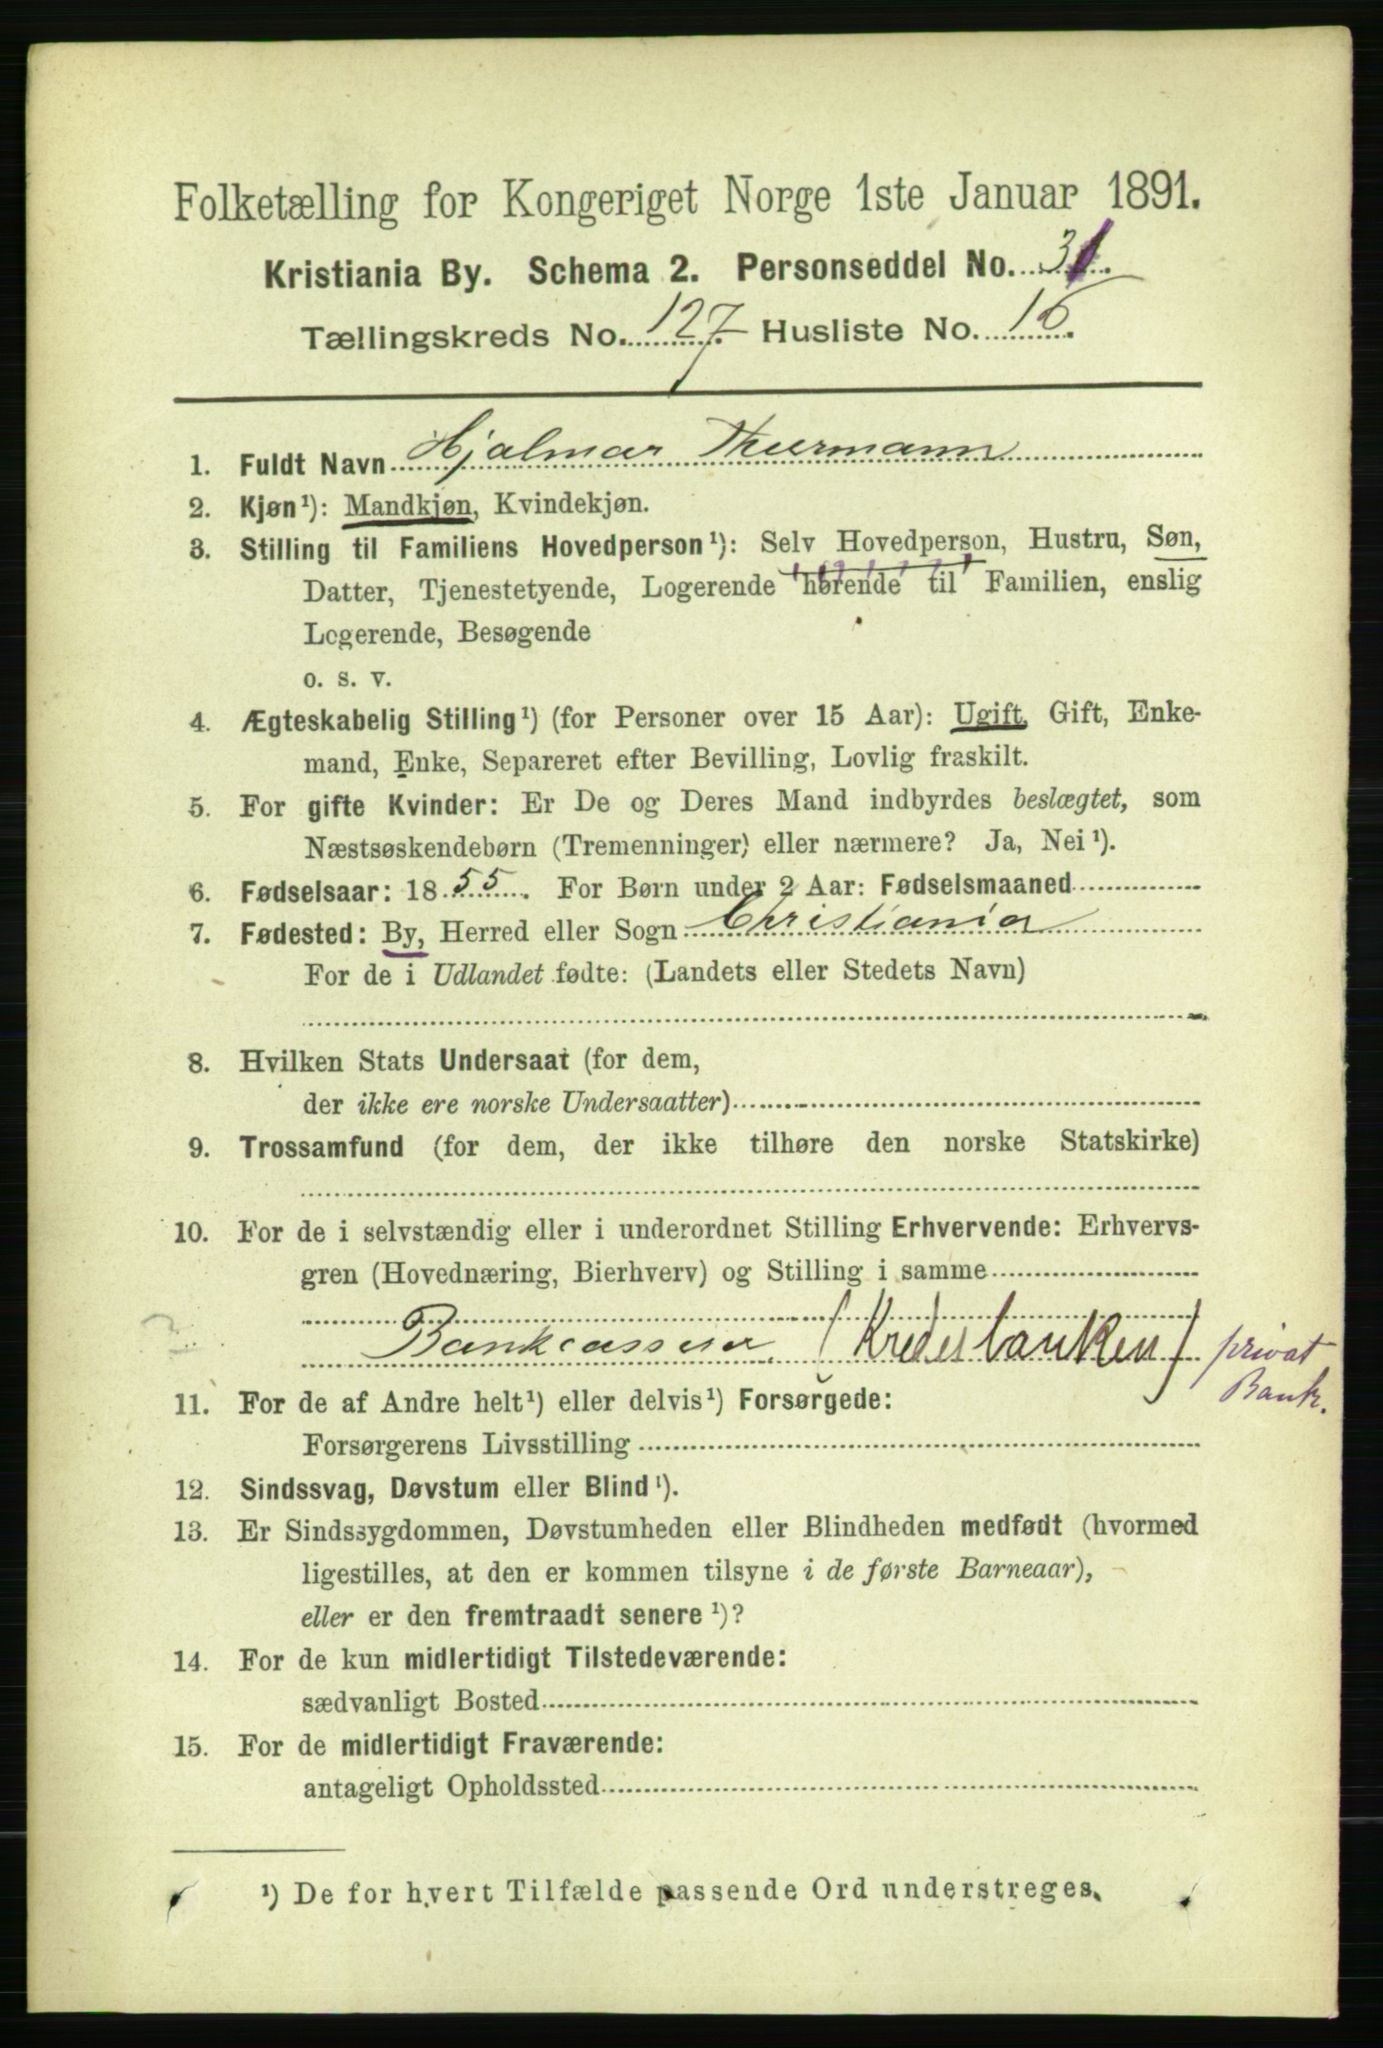 Folketælling for Kongeriget Norge 1ste Januar 1891.
Kristiania By. Schema 2. Personseddel No. 31.
Tællingskreds No. 127. Husliste No. 16.
1. Fuldt Navn Hjalmar Thurmann
2. Kjøn¹): Mandkjøn, Kvindekjøn.
3. Stilling til Familiens Hovedperson¹): Selv Hovedperson, Hustru, Søn,
Datter, Tjenestetyende, Logerende hørende til Familien, enslig
Logerende, Besøgende
o. s. v.
4. Ægteskabelig Stilling¹) (for Personer over 15 Aar): Ugift, Gift, Enke-
mand, Enke, Separeret efter Bevilling, Lovlig fraskilt.
5. For gifte Kvinder: Er De og Deres Mand indbyrdes beslægtet, som
Næstsøskendebørn (Tremenninger) eller nærmere? Ja, Nei¹).
6. Fødselsaar: 1855. For Børn under 2 Aar: Fødselsmaaned
7. Fødested: By, Herred eller Sogn Christiania
For de i Udlandet fødte: (Landets eller Stedets Navn)
8. Hvilken Stats Undersaat (for dem,
der ikke ere norske Undersaatter)
9. Trossamfund (for dem, der ikke tilhøre den norske Statskirke)
10. For de i selvstændig eller i underordnet Stilling Erhvervende: Erhvervs-
gren (Hovednæring, Bierhverv) og Stilling i samme
Bankcasserer (Kredisbanken) privat
Bank.
11. For de af Andre helt¹) eller delvis¹) Forsørgede:
Forsørgerens Livsstilling
12. Sindssvag, Døvstum eller Blind¹).
13. Er Sindssygdommen, Døvstumheden eller Blindheden medfødt (hvormed
ligestilles, at den er kommen tilsyne i de første Barneaar),
eller er den fremtraadt senere¹)?
14. For de kun midlertidigt Tilstedeværende:
sædvanligt Bosted
15. For de midlertidigt Fraværende:
antageligt Opholdssted
¹) De for hvert Tilfælde passende Ord understreges.